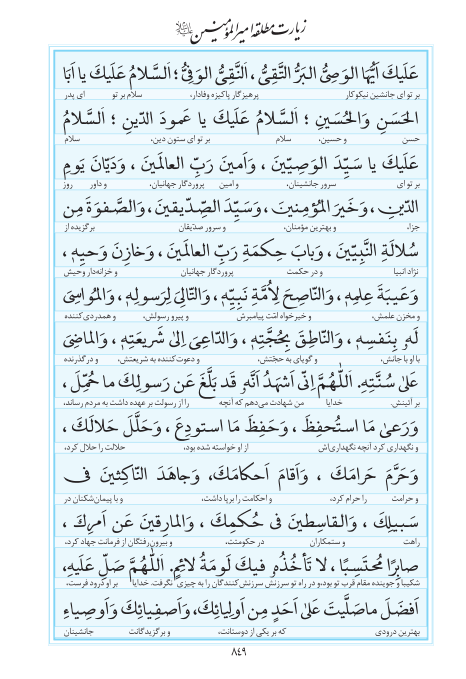 زیارت مطلقه امیرالمؤمنین
عَلَيكَ اَيُّهَا الوَصِىُّ البَرُّ التَّقِىُّ ، اَلنَّقِىُّ الوَفِىُّ ؛ اَلسَّلامُ عَلَيكَ يا اَبَا
بر تو ای جانشین نیکوکار پرهیزگار پاکیزه وفادار، سلام بر تو ای پدر
الحَسَنِ وَالحُسَينِ ؛ اَلسَّلامُ عَلَيكَ يا عَمودَ الدّينِ ؛ اَلسَّلامُ
حسن و حسین، سلام بر تو ای ستون دین، سلام
عَلَيكَ يا سَيِّدَ الوَصِيّينَ ، وَاَمينَ رَبِّ العالَمينَ ، وَدَيّانَ يَومِ
بر تو ای سرور جانشینان، و امین پروردگار جهانیان، و داور روز
الدّينِ، وَخَيرَ المُؤمِنينَ ، وَسَيِّدَ الصِّدّيقينَ، وَالصَّفوَةَ مِن
جزا، و بهترین مؤمنان، و سرور صدّیقان و برگزیده از
سُلالَةِ النَّبِيّينَ ، وَبابَ حِكمَةِ رَبِّ العالَمينَ ، وَخازِنَ وَحيِهِ ،
نژاد انبیا و در حکمت پروردگار جهانیان و خزانه‌دار وحیش
وَعَيبَةَ عِلمِهِ ، وَالنّاصِحَ لِاُمَّةِ نَبِيِّهِ ، وَالتّالِىَ لِرَسولِهِ ، وَالمُواسِىَ
و مخزن علمش، و خیرخواه امّت پیامبرش و پیرو رسولش، و همدردی کننده
لَهُ بِنَفسِهِ ، وَالنّاطِقَ بِحُجَّتِهِ ، وَالدّاعِىَ اِلىٰ شَريعَتِهِ ، وَالماضِىَ
با او با جانش، و گویای به حجّتش، و دعوت کننده به شریعتش، و درگذرنده
عَلىٰ سُنَّتِهِ. اَللّٰهُمَّ اِنّى اَشهَدُ اَنَّهُ قَد بَلَّغَ عَن رَسولِكَ ما حُمِّلَ ،
بر آئینش. خدایا من شهادت می‌دهم که آنچه را از رسولت بر عهده داشت به مردم رساند،
وَرَعىٰ مَا استُحفِظَ ، وَحَفِظَ مَا استودِعَ ، وَحَلَّلَ حَلالَكَ ،
و نگهداری کرد آنچه نگهداری‌اش از او خواسته شده بود، حلالت را حلال کرد،
وَحَرَّمَ حَرامَكَ ، وَاَقامَ اَحكامَكَ، وَجاهَدَ النّاكِثينَ فى
و حرامت را حرام کرد، و احکامت را برپا داشت، و با پیمان‌شکنان در
سَبيلِكَ ، وَالقاسِطينَ فى حُكمِكَ ، وَالمارِقينَ عَن اَمرِكَ ،
راهت و ستمکاران در حکومتت، و بیرون‌رفتگان از فرمانت جهاد کرد،
صابِرًا مُحتَسِبًا ، لا تَأخُذُهُ فيكَ لَومَةُ لائِمٍ. اَللّٰهُمَّ صَلِّ عَلَيهِ،
شکیبا و جوینده مقام قرب تو بود، و در راه تو سرزنش سرزنش‌کنندگان را به چیزی نگرفت. خدایا بر او درود فرست،
اَفضَلَ ماصَلَّيتَ عَلىٰ اَحَدٍ مِن اَولِيائِكَ، وَاَصفِيائِكَ وَاَوصِياءِ
بهترین درودی که بر یکی از دوستانت، و برگزیدگانت جانشینان
۸۴۹